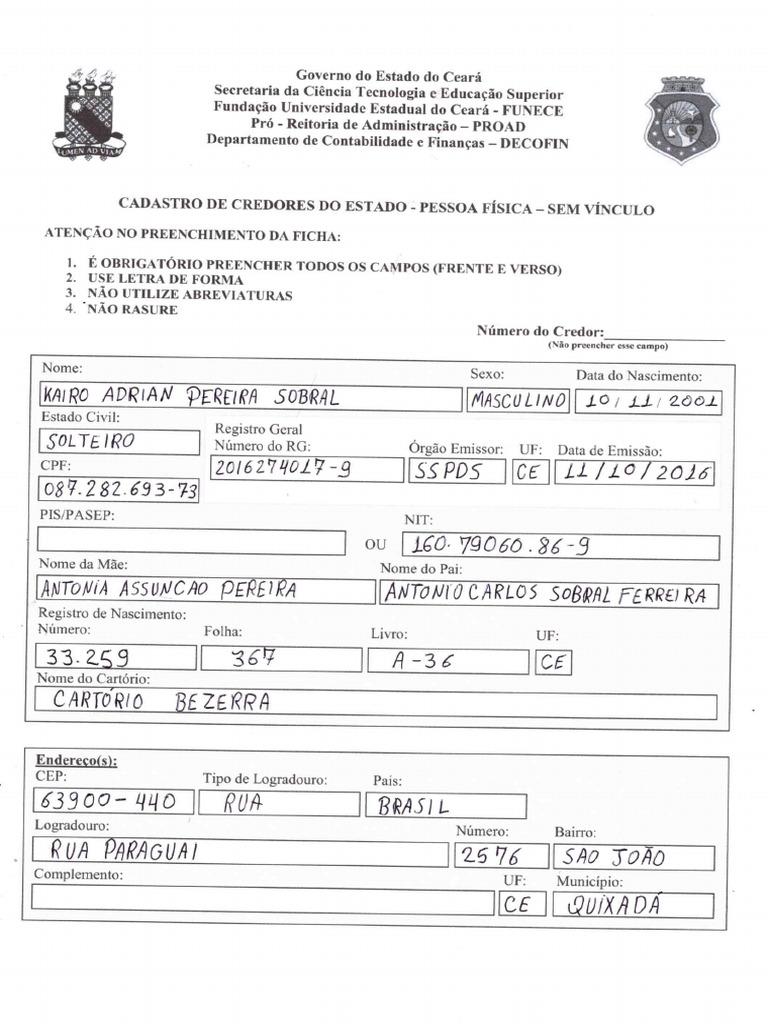 Governo do Estado do Ceará
Secretaria da Ciência Tecnologia e Educação Superior
Fundação Universidade Estadual do Ceará - FUNECE
Pró - Reitoria de Administração – PROAD
Departamento de Contabilidade e Finanças – DECOFIN
LUMEN AD VIAM
CADASTRO DE CREDORES DO ESTADO - PESSOA FÍSICA – SEM VÍNCULO
ATENÇÃO NO PREENCHIMENTO DA FICHA:
1. É OBRIGATÓRIO PREENCHER TODOS OS CAMPOS (FRENTE E VERSO)
2. USE LETRA DE FORMA
3. NÃO UTILIZE ABREVIATURAS
4. NÃO RASURE
Número do Credor:
(Não preencher esse campo)
Nome: Sexo: Data do Nascimento:
KAIRO ADRIAN PEREIRA SOBRAL MASCULINO 10/11/2001
Estado Civil: Registro Geral
SOLTEIRO Número do RG: Órgão Emissor: UF: Data de Emissão:
CPF: 2016274017-9 SSPDS CE 11/10/2016
087.282.693-73
PIS/PASEP: NIT:
OU 160.79060.86-9
Nome da Mãe: Nome do Pai:
ANTONIA ASSUNCAO PEREIRA ANTONIO CARLOS SOBRAL FERREIRA
Registro de Nascimento:
Número: Folha: Livro: UF:
33.259 367 A-36 CE
Nome do Cartório:
CARTÓRIO BEZERRA
Endereço(s):
CEP: Tipo de Logradouro: Pais:
63900-440 RUA BRASIL
Logradouro: Número: Bairro:
RUA PARAGUAI 2576 SAO JOÃO
Complemento: UF: Município:
CE QUIXADÁ